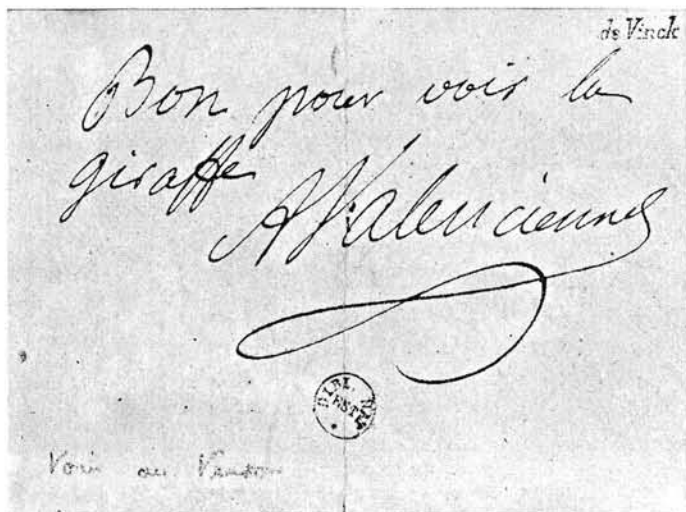 de Vinck
Bon pour voir la
giraffe
A Valenciennes
BIBL. NAT.
EST.
Voir au